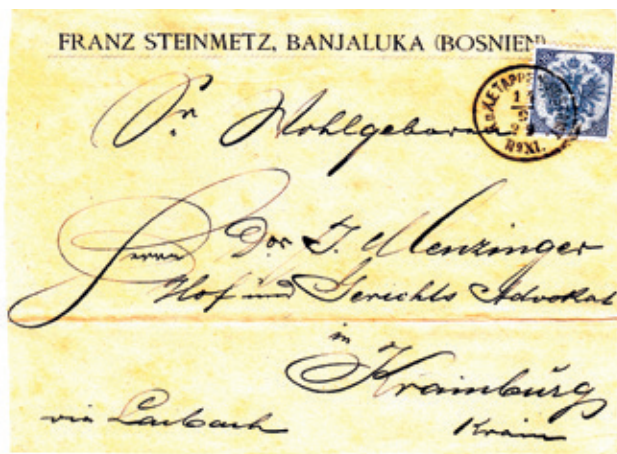 FRANZ STEINMETZ, BANJALUKA (BOSNIEN)
K.u.K. ETAPPEN
No XI.
Sr Wohlgeboren
Herrn Dor J. Menzinger
Hof und Gerichts Advokat
in
Krainburg
via Laibach Krain